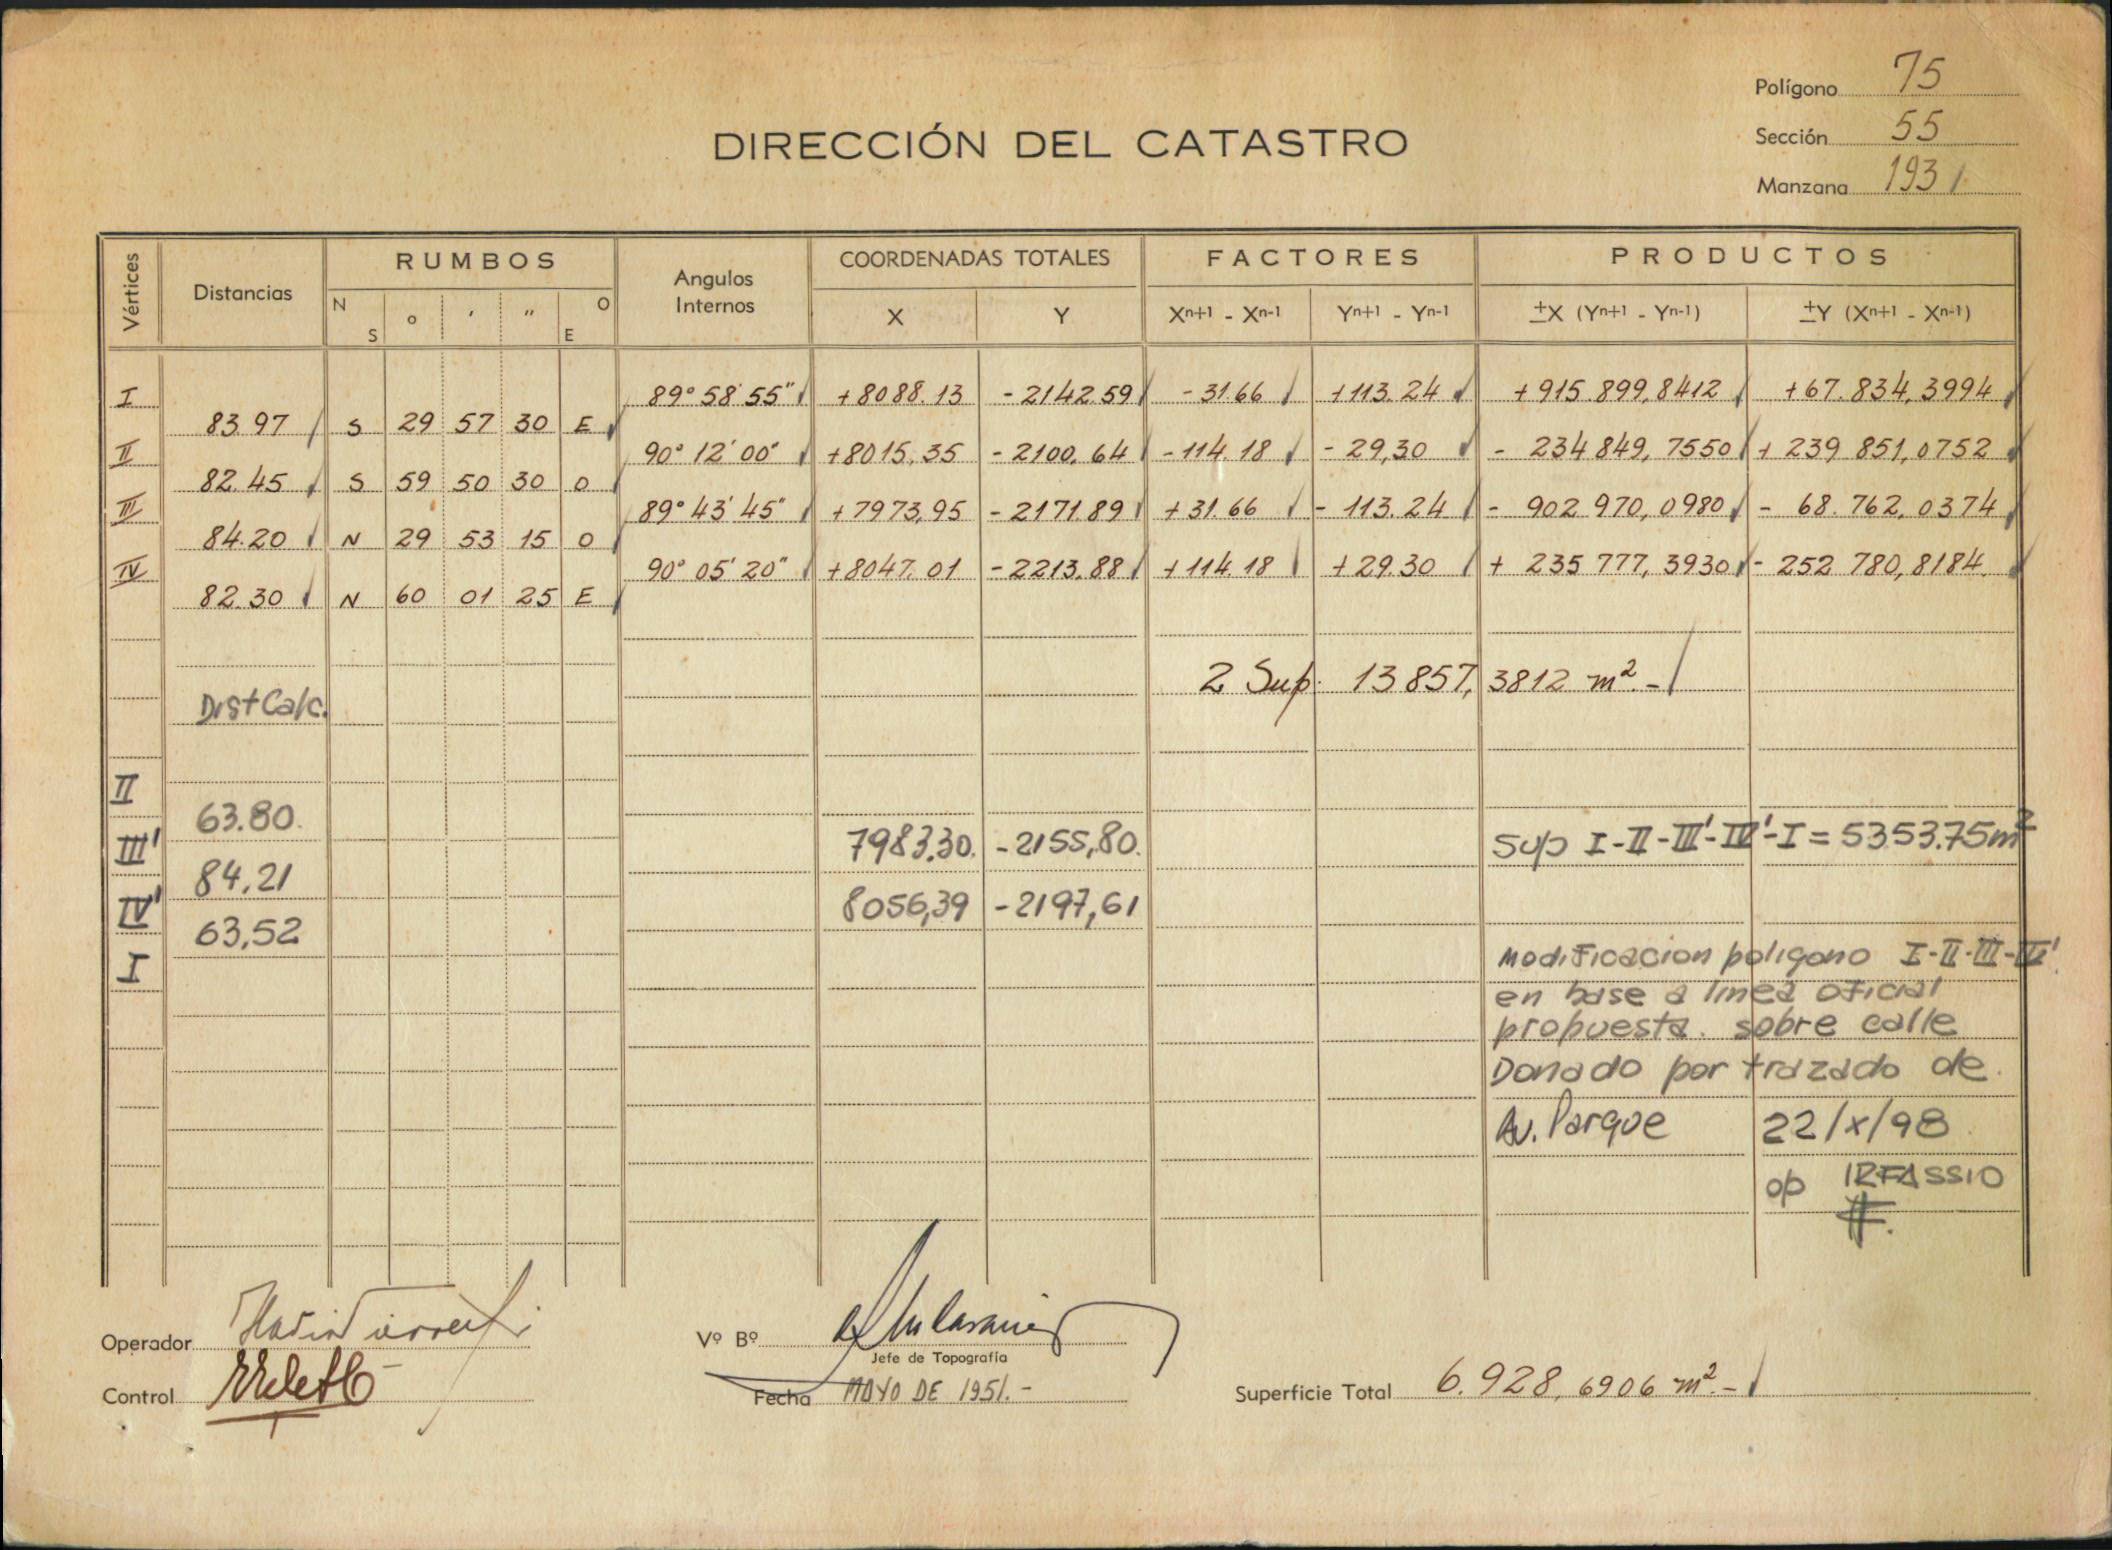 Polígono 75
DIRECCIÓN DEL CATASTRO
Sección 55
Manzana 193
Vértices Distancias RUMBOS Angulos Internos COORDENADAS TOTALES FACTORES PRODUCTOS
N S ° ' " O E X Y Xn+1 - Xn-1 Yn+1 - Yn-1 ±X (Yn+1 - Yn-1) ±Y (Xn+1 - Xn-1)
I 89° 58' 55" +8088.13 -2142.59 -31.66 +113.24 +915.899,8412 +67.834,3994
83.97 S 29 57 30 E
II 90° 12' 00" +8015,35 -2100,64 -114.18 -29,30 - 234849,7550 + 239851,0752
82.45 S 59 50 30 O
III 89° 43' 45" +7973,95 -2171.89 +31.66 -113.24 - 902970,0980 - 68.762,0374
84.20 N 29 53 15 O
IV 90° 05' 20" +8047.01 -2213.88 +114.18 +29.30 + 235777,3930 - 252780,8184
82.30 N 60 01 25 E
2 Sup. 13857,3812 m².-
Dist Calc.
II
63.80
III' 7983,30. -2155,80. Sup I-II-III'-IV'-I = 5353.75m²
84,21
IV' 8056,39 -2197,61
63,52
I
Modificacion poligono I-II-III-IV'
en base a linea oficial
propuesta. sobre calle
Donado por trazado de
Av. Parque 22/X/98
op IRFASSIO
Operador
Vº Bº
Jefe de Topografía
Control
Fecha MAYO DE 1951.-
Superficie Total 6.928,6906 m².-